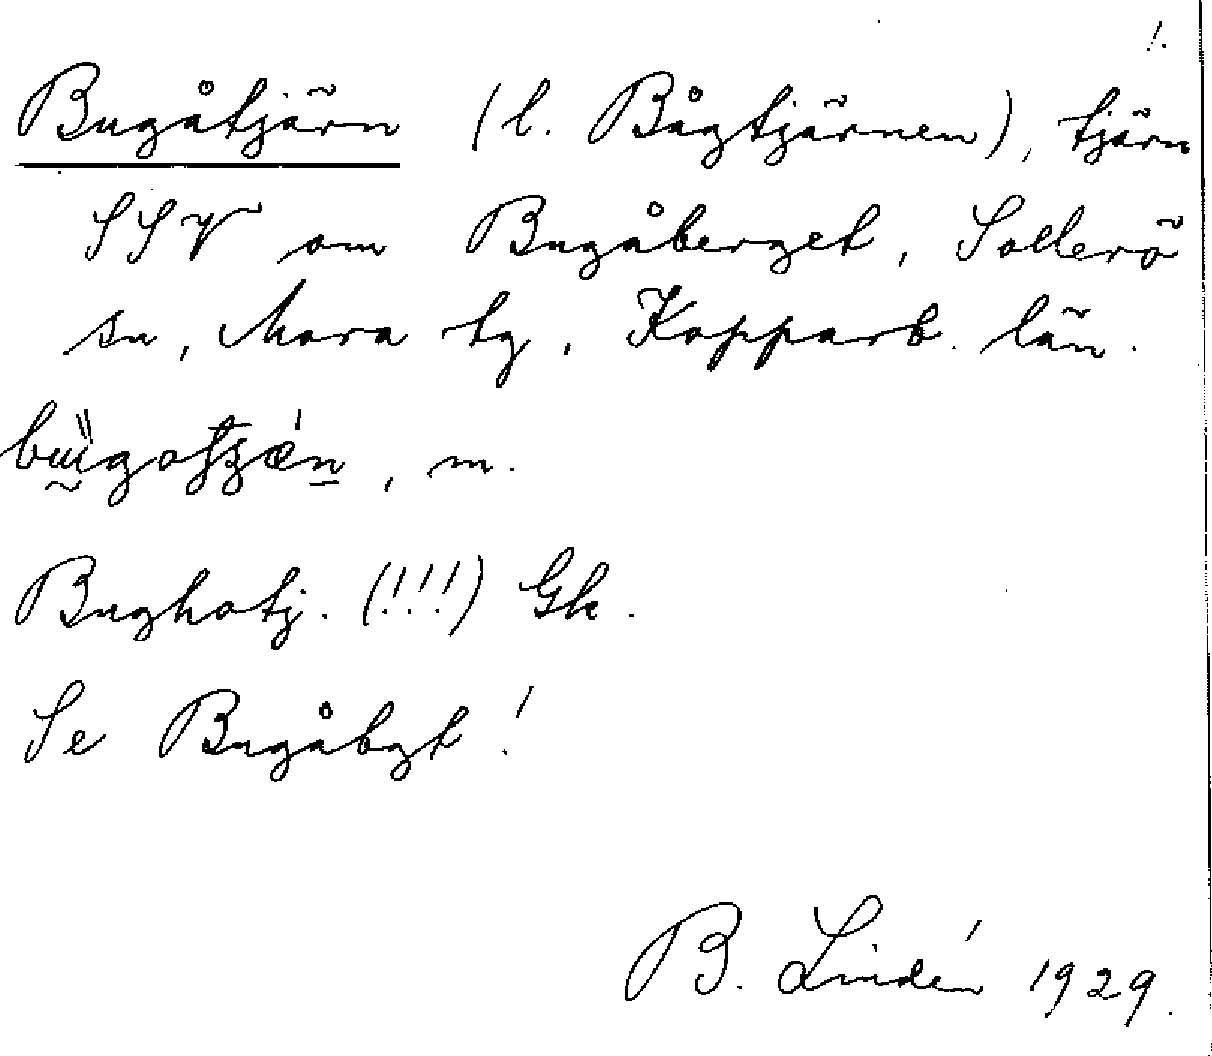 !.
Bugåtjärn (l. Bågtjärnen), tjärn
SSV om Bugåberget, Sollerö
sn, Mora tg, Kopparb. län.
, m.
Bughotj. (!!!) Gk.
Se Bugåbgt!
B. Lindén 1929.